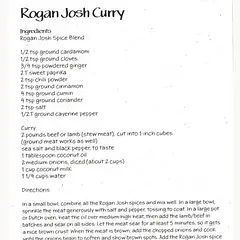 Rogan Josh Curry
Ingredients
Rogan Josh Spice Blend
1/2 tsp ground cardamom
1/2 tsp ground cloves
3/4 tsp powdered ginger
2 T sweet paprika
2 tsp chili powder
2 tsp ground cinnamon
4 tsp ground cumin
4 tsp ground coriander
2 tsp salt
1/2 T ground cayenne pepper
Curry
2 pounds beef or lamb (stew meat), cut into 1 inch cubes
(ground meat works as well)
sea salt and black pepper, to taste
1 tablespoon coconut oil
2 medium onions, diced (about 2 cups)
1 cup coconut milk
1 1/3 cups water
Directions:
In a small bowl, combine all the Rogan Josh spices and mix well. In a large bowl,
sprinkle the meat generously with salt and pepper, tossing to coat. In a large pot
or Dutch oven, heat the oil over medium high heat, then add the lamb/beef in
batches and sear on all sides. Let the meat sear for at least 5 minutes, so it gets
a nice brown color. When the meat is brown, add the chopped onions and cook
until the onions begin to soften and show brown spots. Add the Rogan Josh spice